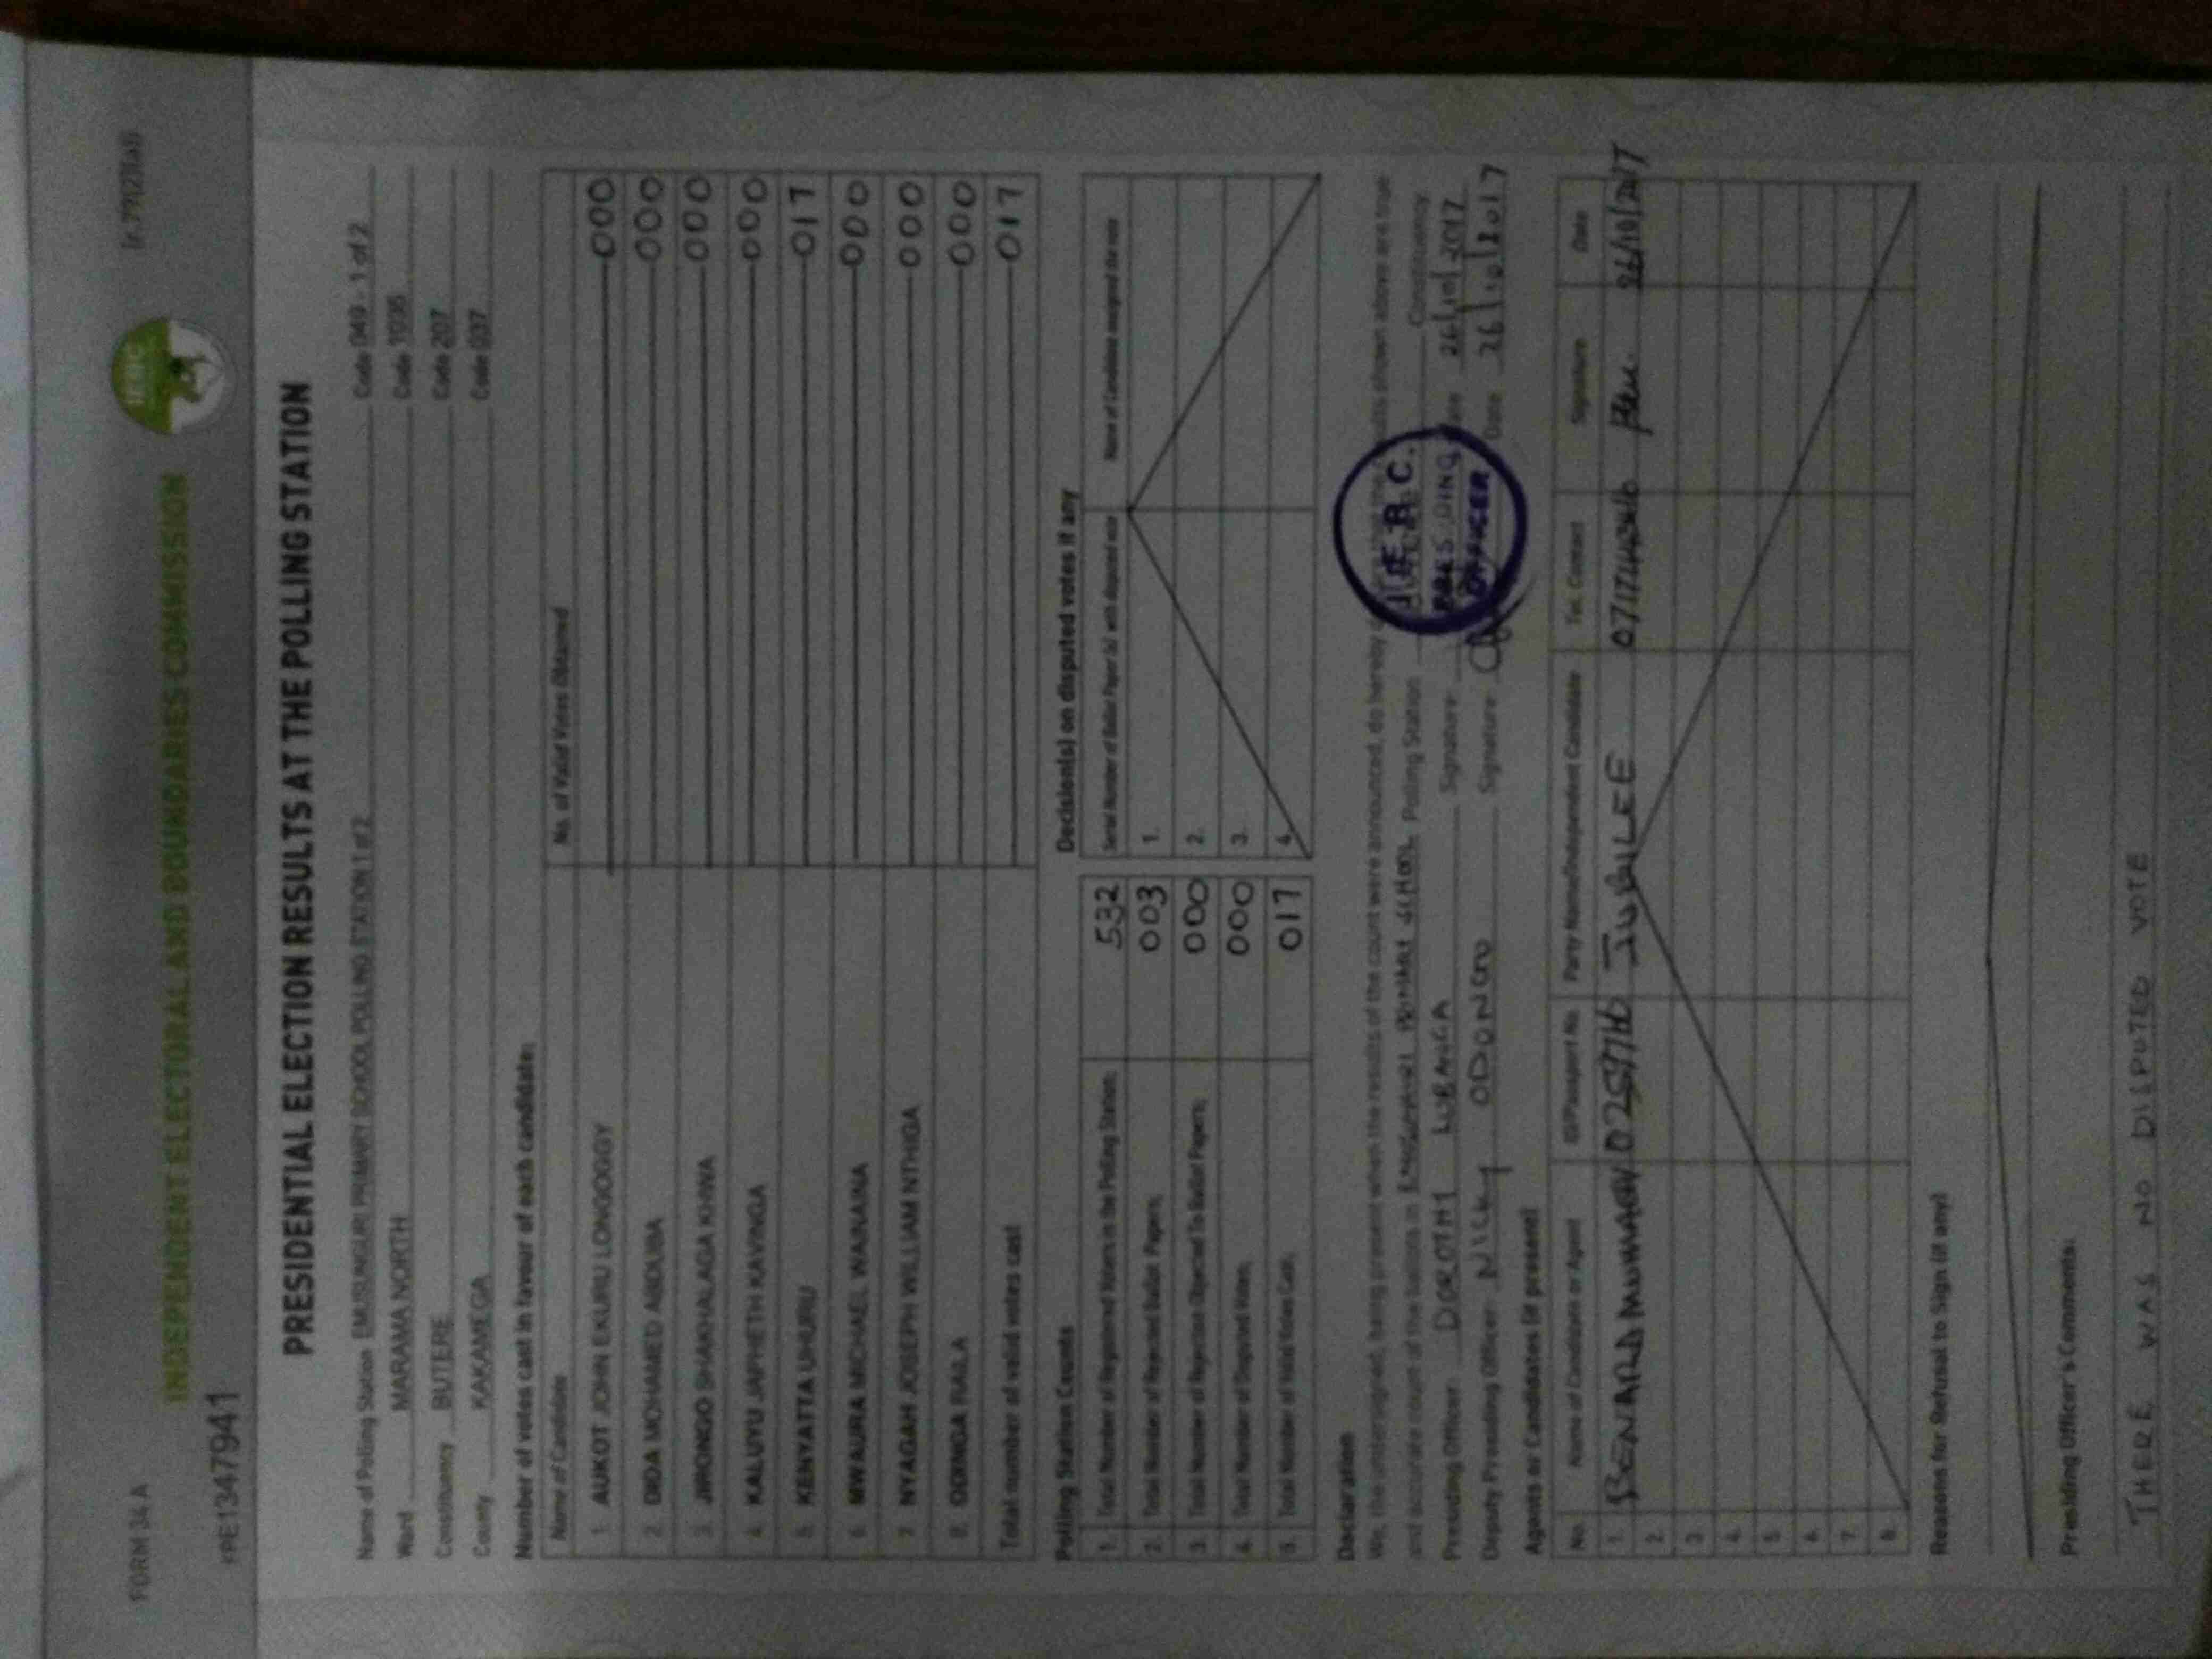 FORM 34 A
[r.79(2)(a)]
IEBC
INDEPENDENT ELECTORAL AND BOUNDARIES COMMISSION
PRESIDENTIAL ELECTION RESULTS AT THE POLLING STATION
Name of Polling Station EMUSUNGURI PRIMARY SCHOOL POLLING STATION 1 of 2 Code 049 - 1 of 2
Ward MARAMA NORTH Code 1035
Constituency BUTERE Code 207
County KAKAMEGA Code 037
Number of votes cast in favour of each candidate:
Name of Candidate No. of Valid Votes Obtained
1. AUKOT JOHN EKURU LONGOGGY 000
2. DIDA MOHAMED ABDUBA 000
3. JIRONGO SHAKHALAGA KHWA 000
4. KALUYU JAPHETH KAVINGA 000
5. KENYATTA UHURU 017
6. MWAURA MICHAEL WAINAINA 000
7. NYAGAH JOSEPH WILLIAM NTHIGA 000
8. ODINGA RAILA 000
Total number of valid votes cast 017
Polling Station Counts
1. Total Number of Registered Voters in the Polling Station: 532
2. Total Number of Rejected Ballot Papers: 003
3. Total Number of Rejection Objected To Ballot Papers: 000
4. Total Number of Disputed Votes: 000
5. Total Number of Valid Votes Cast: 017
Decision(s) on disputed votes if any
Serial Number of Ballot Paper(s) with disputed vote Name of Candidate assigned the vote
1.
2.
3.
4.
Declaration
We, the undersigned, being present when the results of the count were announced, do hereby shown above are true
and accurate count of the ballots in PRIMARY SCHOOL Polling Station Constituency
Presiding Officer DOROTHY LUBANGA Signature Date 26/10/2017
Deputy Presiding Officer NICKY ODONGO Signature Date 26/10/2017
I.E.B.C.
PRESIDING
OFFICER
Agents or Candidates (if present)
No. Name of Candidate or Agent ID/Passport No. Party Name/Independent Candidate Tel. Contact Signature Date
1. BENARD JUBILEE 26/10/2017
2.
3.
4.
5.
6.
7.
8.
Reasons for Refusal to Sign (if any)
Presiding Officer's Comments:
THERE WAS NO DISPUTED VOTE